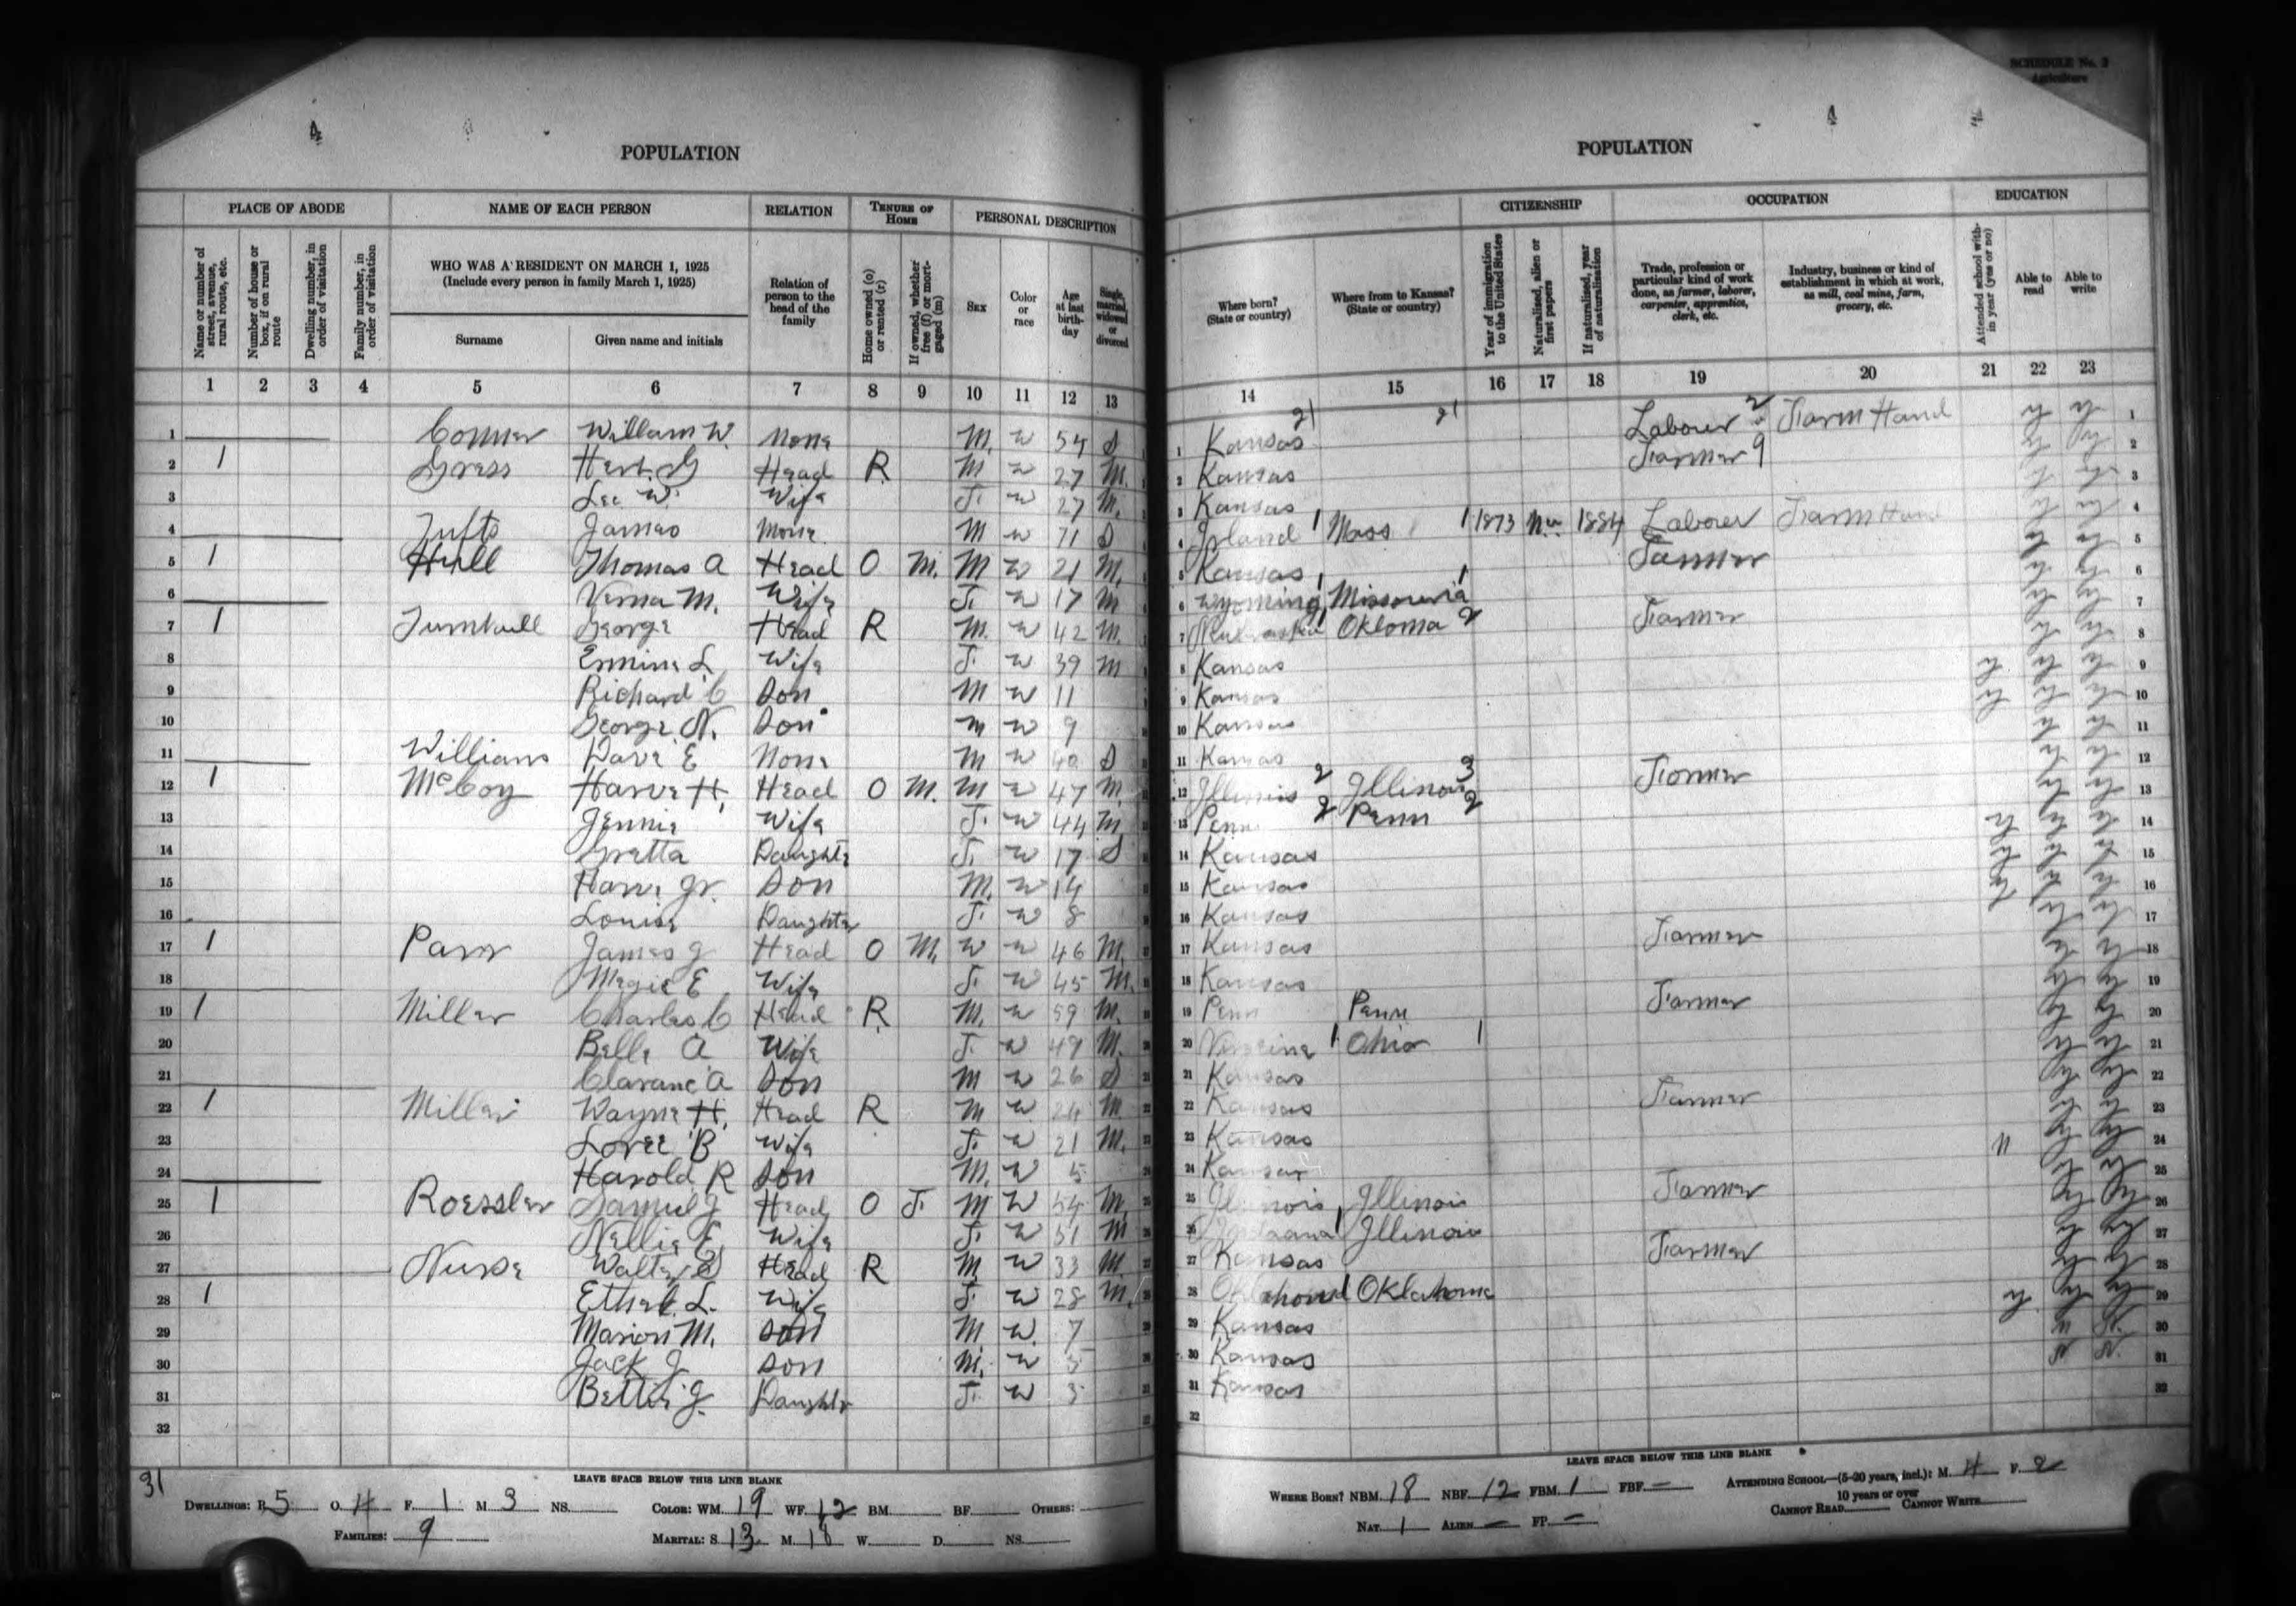 SCHEDULE No. 2
Agriculture
POPULATION
POPULATION
PLACE OF ABODE NAME OF EACH PERSON RELATION TENURE OF HOME PERSONAL DESCRIPTION CITIZENSHIP OCCUPATION EDUCATION
Name or number of street, avenue, rural route, etc.
Number of house or box, if on rural route
Dwelling number, in order of visitation
Family number, in order of visitation
WHO WAS A RESIDENT ON MARCH 1, 1925
(Include every person in family March 1, 1925)
Surname Given name and initials
Relation of person to the head of the family
Home owned (o) or rented (r)
If owned, whether free (f) or mortgaged (m)
SEX
Color or race
Age at last birthday
Single, married, widowed or divorced
Where born? (State or country)
Where from to Kansas? (State or country)
Year of immigration to the United States
Naturalized, alien or first papers
If naturalized, year of naturalization
Trade, profession or particular kind of work done, as farmer, laborer, carpenter, apprentice, clerk, etc.
Industry, business or kind of establishment in which at work, as mill, coal mine, farm, grocery, etc.
Attended school within year (yes or no)
Able to read
Able to write
1 2 3 4 5 6 7 8 9 10 11 12 13 14 15 16 17 18 19 20 21 22 23
1 Conner William W. None M. W 54 S Kansas Laborer Farm Hand y y
2 1 Head R M W 27 M. Kansas Farmer y y
3 Wife F. W 27 M. Kansas y y
4 Tufts James None M W 71 S Irland Mass 1873 1884 Laborer Farm Hand y y
5 1 Hull Thomas A Head O M. M W 21 M. Kansas Farmer y y
6 Verna M. Wife F. W 17 M Wyoming y y
7 1 Turnbull George Head R M. W 42 M. Okloma Farmer y y
8 Ermina L. Wife F. W 39 M Kansas y y
9 Richard C Son M W 11 Kansas y y y
10 George N. Son M W 9 Kansas y y y
11 Williams Dave E None M W 40 S Kansas y y
12 1 McCoy Harve H. Head O M. M W 47 M. Illinois Illinois Farmer y y
13 Jennie Wife F. W 44 M Penn Penn y y
14 Gretta Daughter F. W 17 S Kansas y y y
15 Harve Jr. Son M. W 14 Kansas y y y
16 Louise Daughter F. W 8 Kansas y y y
17 1 Parr James J Head O M. W W 46 M. Kansas Farmer y y
18 Magie E Wife F. W 45 M. Kansas y y
19 1 Miller Charles C Head R M. W 59 M. Penn Penn Farmer y y
20 Belle A Wife F. W 49 M. Ohio y y
21 Claranc A Son M W 26 S Kansas y y
22 1 Miller Wayne H. Head R M W 24 M Kansas Farmer y y
23 Wife F. W 21 M. Kansas y y
24 Harold R Son M. W 5 Kansas n
25 1 Roessler Samuel J Head O F. M W 54 M. Illinois Illinois Farmer y y
26 Nellie E Wife F. W 51 M Illinois y y
27 Nurse Walter Head R M. W 33 M Kansas Farmer y y
28 1 Ethel L. Wife F W 28 M. Oklahoma Oklahoma y y
29 Marion M. Son M W. 7 Kansas y
30 Jack J Son M. W 5 Kansas
31 Bettie J. Daughter F. W 3 Kansas
32
31
LEAVE SPACE BELOW THIS LINE BLANK
DWELLINGS: R. 5 O. 4 F. 1 M. 3 NS. COLOR: WM. 19 WF. 12 BM. BF. OTHERS:
FAMILIES: 9 MARITAL: S. 13 M. 18 W. D. NS.
LEAVE SPACE BELOW THIS LINE BLANK
WHERE BORN? NBM. 18 NBF. 12 FBM. 1 FBF. — ATTENDING SCHOOL—(5-20 years, incl.): M. 4 F. 2
10 years or over
NAT. 1 ALIEN — FP. — CANNOT READ CANNOT WRITE